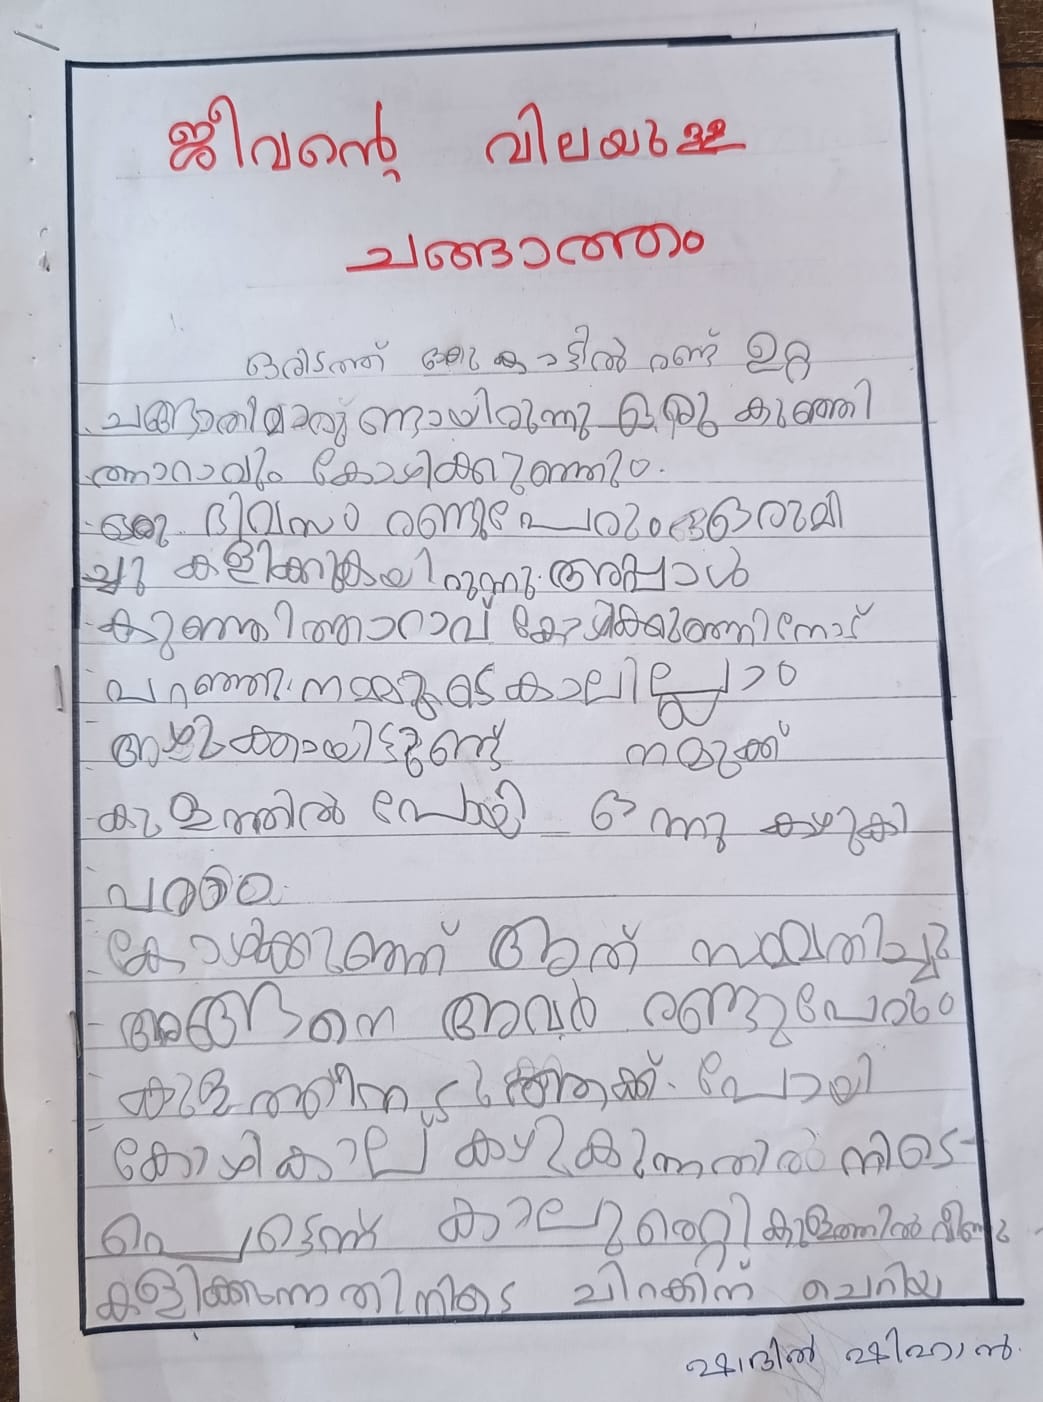 ജീവന്റെ വിലയുള്ള
ചങ്ങാത്തം
ഒരിടത്ത് ഒരു കാട്ടിൽ രണ്ട് ഉറ്റ
ചങ്ങാതിമാരുണ്ടായിരുന്നു ഒരു കുഞ്ഞി
ത്താറാവും കോഴിക്കുഞ്ഞും.
ഒരു ദിവസം രണ്ടുപേരും ഒരുമി
ച്ചു കളിക്കുകയിരുന്നു. അപ്പോൾ
കുഞ്ഞിത്താറാവ് കോഴിക്കുഞ്ഞിനോട്
പറഞ്ഞു. നമ്മുടെ കാലിപ്പോം
അഴുക്കായിട്ടുണ്ട് നമുക്ക്
കുളത്തിൽ പോയി ഒന്നു കഴുകി
വരാം.
കോഴിക്കുഞ്ഞ് അത് സമ്മതിച്ചു
അങ്ങനെ അവർ രണ്ടുപേരും
കുളത്തിനടുത്തേക്ക്. പോയി
കോഴി കാല് കഴുകുന്നതിൽ നിടെ-
പെട്ടെന്ന് കാലുതെറ്റി കുളത്തിൽ വീണു
കളിക്കുന്നതിനിടെ ചിറകിന് ചെറിയ
ഷാദിൽ ഷിഹാൻ.